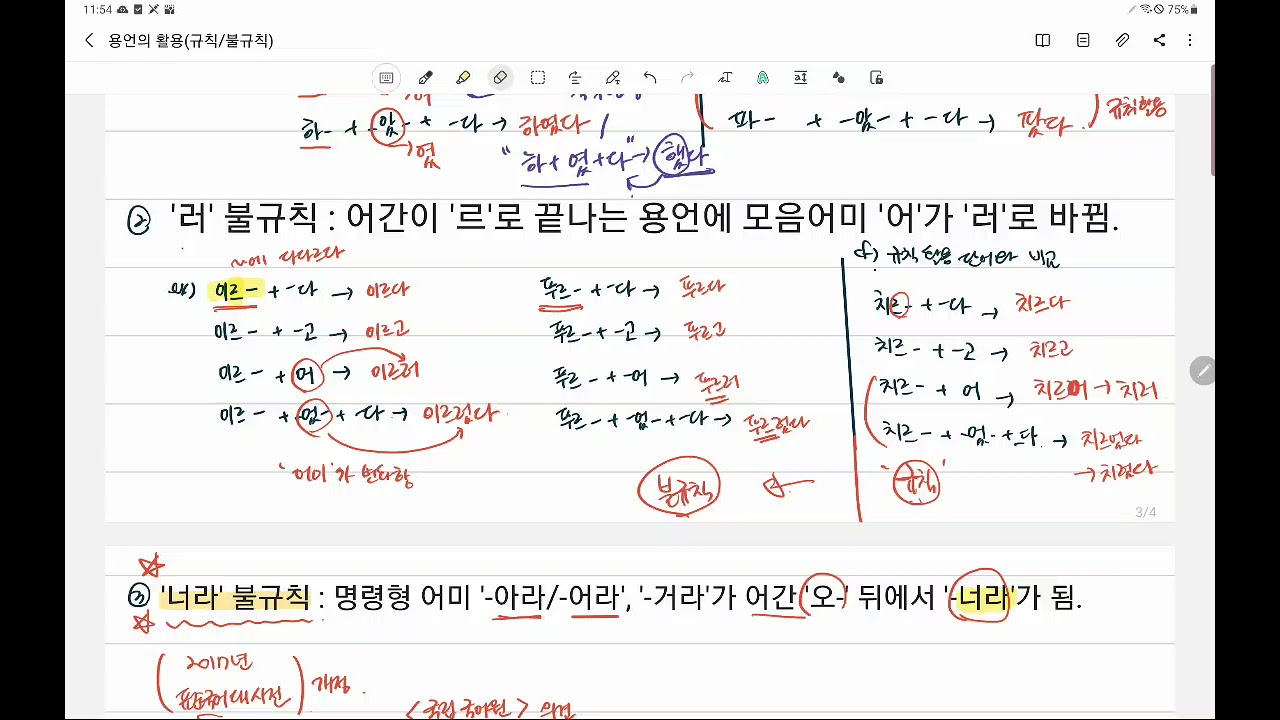 11:54
75%
용언의 활용(규칙/불규칙)
하- + -았- + -다 → 하였다 /
→ 였
"하 + 였 + 다" → 했다
파- + -았- + -다 → 팠다.
규칙활용
② '러' 불규칙 : 어간이 '르'로 끝나는 용언에 모음어미 '어'가 '러'로 바뀜.
~에 다다르다
예) 이르- + -다 → 이르다
이르- + -고 → 이르고
이르- + 어 → 이르러
이르- + -었- + -다 → 이르렀다
'어미'가 변화함
푸르- + -다 → 푸르다
푸르- + -고 → 푸르고
푸르- + -어 → 푸르러
푸르- + -었- + -다 → 푸르렀다
불규칙
cf) 규칙 활용 단어와 비교
치르- + -다 → 치르다
치르- + -고 → 치르고
치르- + 어 → 치르어 → 치러
치르- + -었- + -다. → 치르었다
→ 치렀다
"규칙"
3/4
③ '너라' 불규칙 : 명령형 어미 '-아라/-어라', '-거라'가 어간 '오-' 뒤에서 '-너라'가 됨.
2017년
표준국어대사전
개정.
<국립국어원> 의견